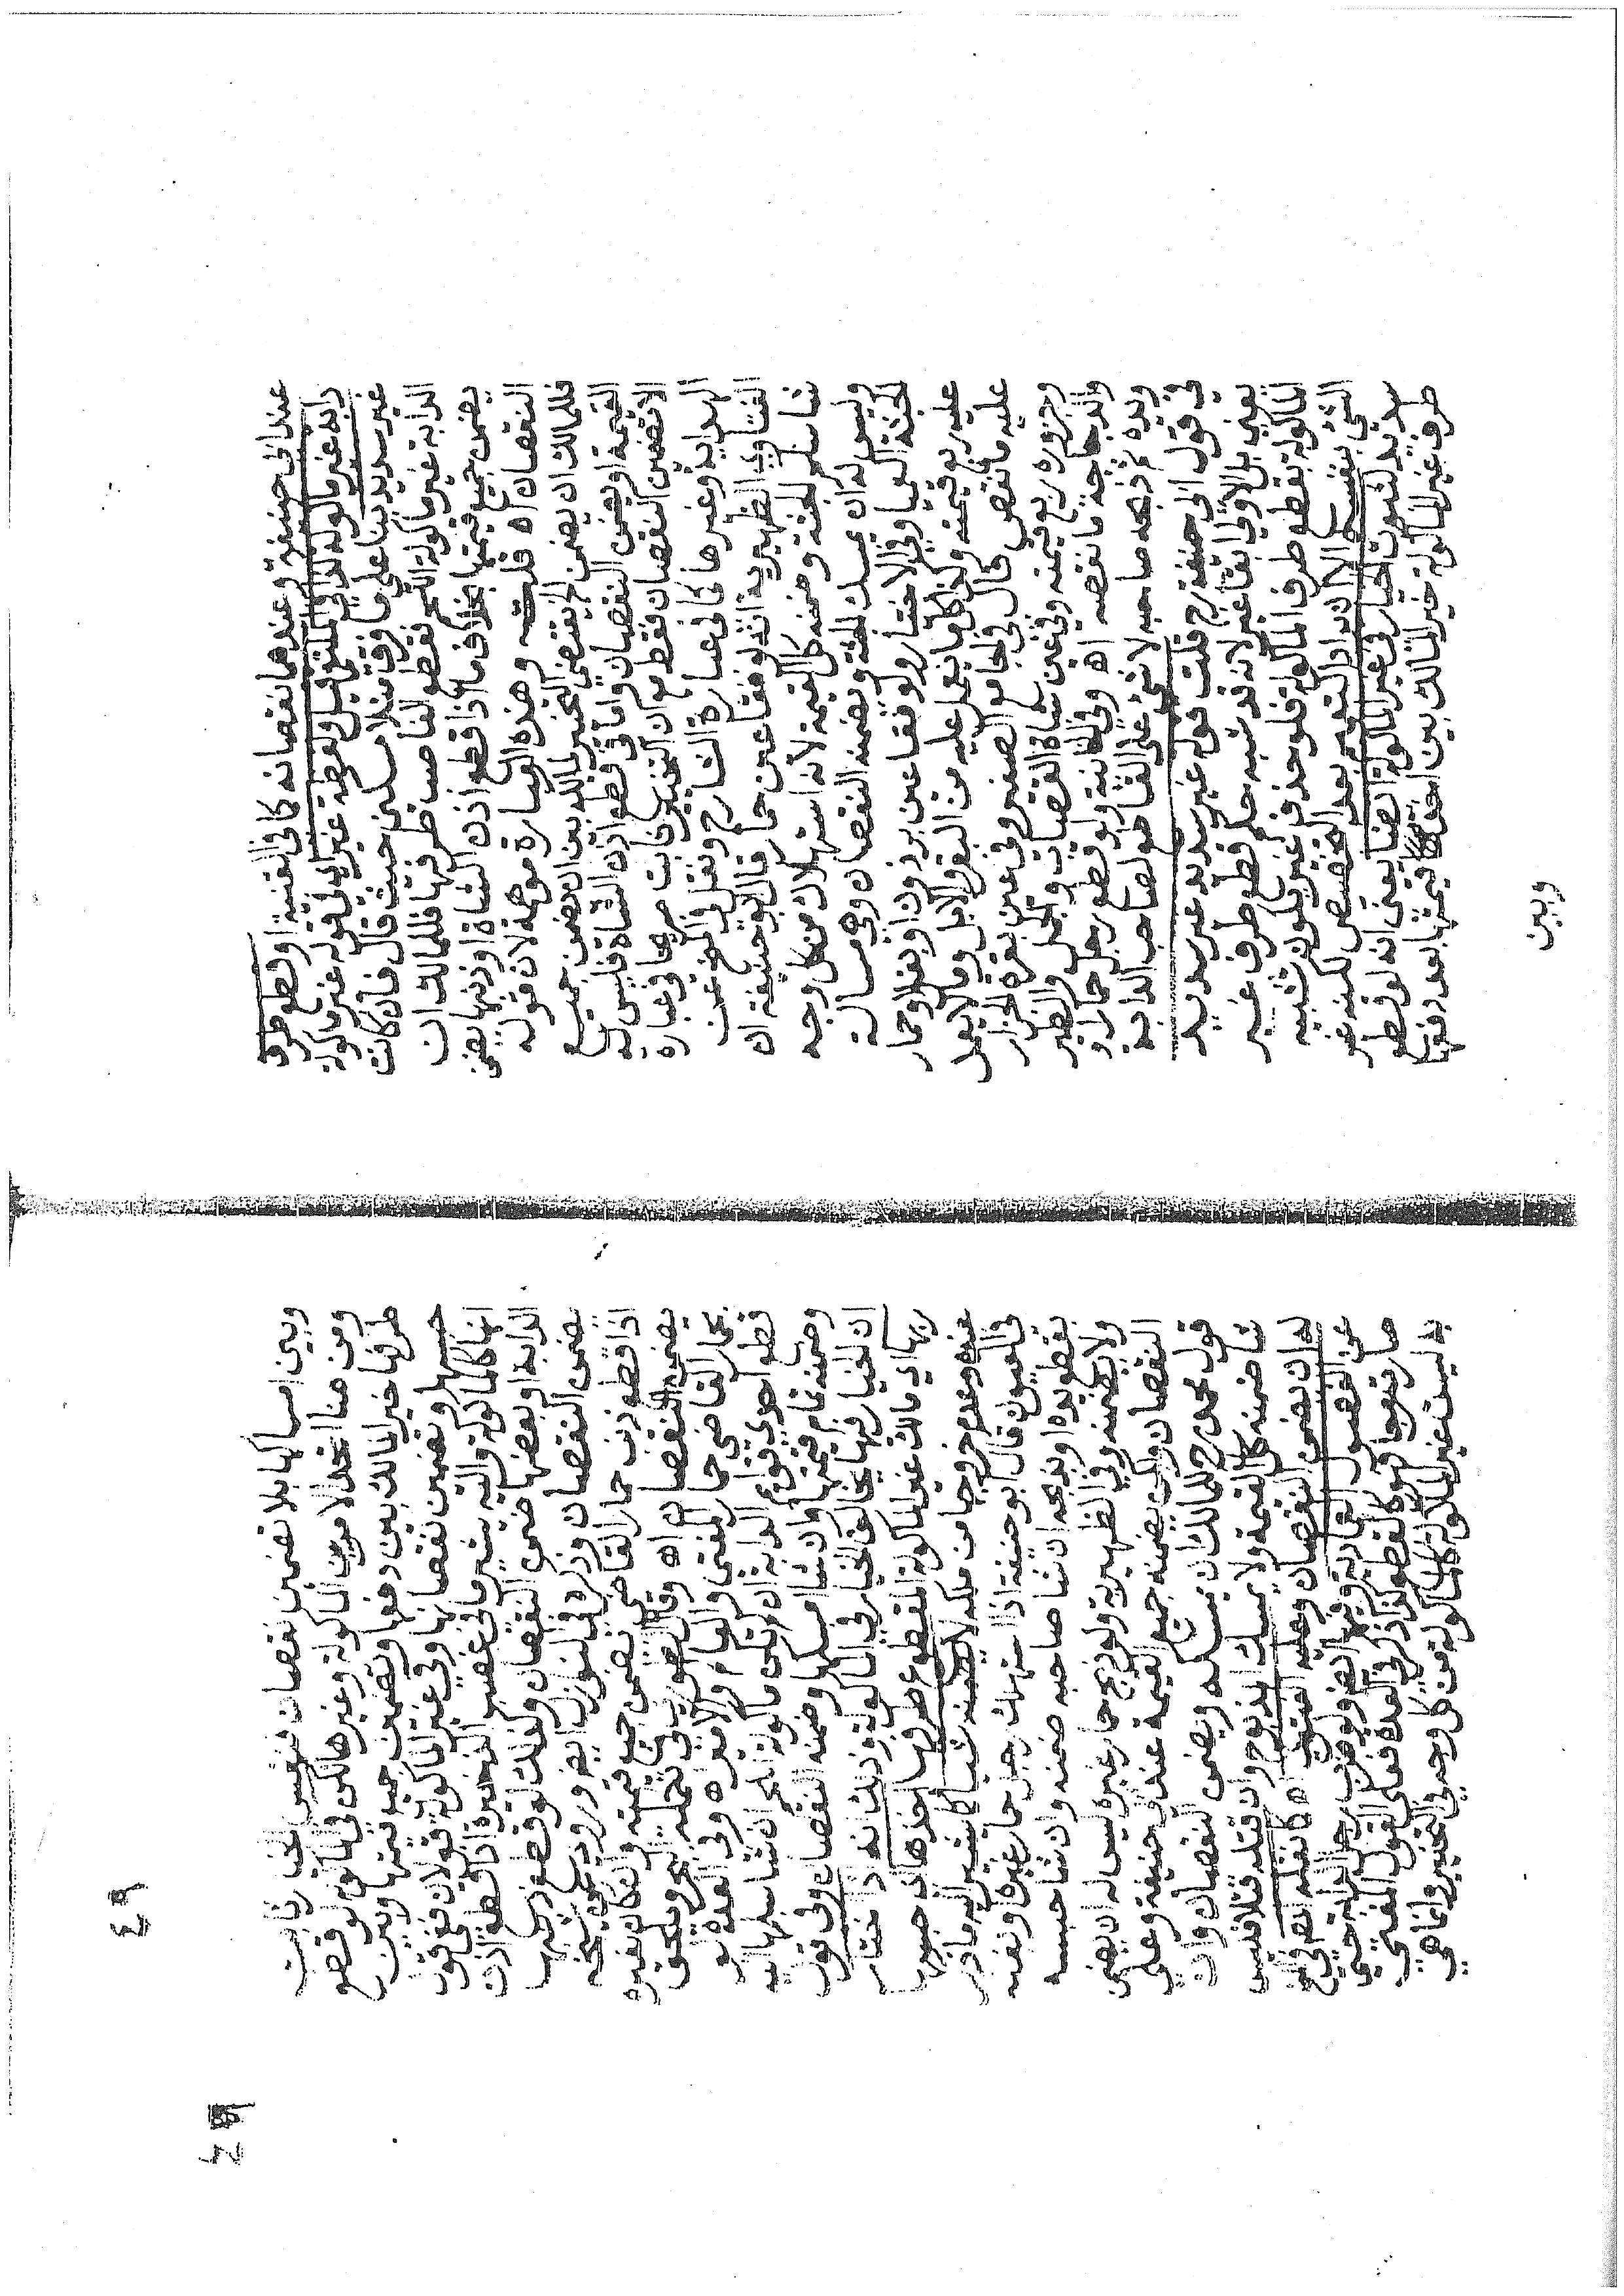 عند ابى حنيفة وعندهما نقصانه كما فى القنية او قطع طرف
دابة غير ماكولة كذا فى الملتقى قيل ولفظة غير اى فى قوله غير ماكولة
غير سديد بناء على ما فرق منلا مسكين حيث قال فان كانت
الدابة غير ماكولة اللحم فقطع الغاصب طرفها فللمالك ان
يضمن جميع قيمتها بخلاف ما اذا قطع اذن الشاة او ذنبها يضمن
النقصان اه قلت وهذه العبارة موهمة لان قوله
فللمالك ان يضمن الخ يقتضى التخيير للمالك بين ان يضمن جميع
القيمة او يضمن النقصان واما فى قطع اذن الشاة فليس له
الا تضمين النقصان فقط مع ان التخيير ثابت صريحا فى عبارة
الهداية وغيرها كما فى عبارة الشارح ونقل فى المنح عن
الفتاوى الظهيرية انه لو فقا عين حمار قال ابو حنيفة ان
شا سلم الجثة وضمنه كل القيمة لانه استهلاك من كل وجه
وليس له ان يمسك الجثة ويضمنه النقصان وهى مسالة
الجثة العميا وفى الاختيار ولو فقا عين برذون او بغل او حمار
عليه ربع قيمته وكذا كل ما يعمل عليه من البقر والابل وما لا يعمل
عليه ما نقص قال فى الجامع الصغير وفى عين بقرة الجزار
وجزوره ربع قيمته وفى عين شاة القصاب والحمل والطير
والدجاجة ما نقصه اه وفى الخانية ولو قطع رجل حمار او
ويده ثم ذبحه صاحبه لا شى على القاطع لصاحب الدابة
فى قول ابى حنيفة رح قلت قوله غير سديد غير سديد
يعنى بل الاولى ابقا غير لانه قد شبه حكم قطع طرف غير
الماكولة بقطع طرف الماكولة فلو حذف غير يكون شبه
الشى بنفسه الا ان يراد التعميم بعد التخصيص لكنه غير
سديد لثبوت الخيار فى غير الماكولة ايضا يعنى انه لو قطع
طرف غير الماكولة خير المالك بين اخذ قيمتها بعد دفعها
وبين
٤٩
٤٩
وبين امساكها بلا تضمين نقصان فنفس الخيار ثابت
ومن هنا اتحد الامر بين الماكولة وغيرها لكن فى الماكولة لو قطع
طرفها خير المالك بين دفعها وتضمين جميع قيمتها وبين
حبسها وتضمين نقصانها وفى غير الماكولة قولان ففى قول
انها كالماكولة واليه يشير ما فى غصب الذخيرة اذا قطع اذن
الدابة او بعضها ضمن النقصان وكذلك لو قطع ذنبها
يضمن النقصان وذكره فى النوازل ايضا وروى عن شريح
اذا قطع ذنب حمار القاضى يضمن جميع قيمته وان كان لغيره
يضمن النقصان اه وقال البحر ويلحق
بحمار القاضى حمار المفتى والعالم والامير اه وفى العدة لو
قطع احدى قوائم الدابة ان لم تكن ماكولة اللحم ان شا سلمها اليه
وضمنه تمام قيمتها وان شا امسكها وضمنه النقصان وفى قول
ان الخيار فيها يخالف الخيار فى الماكولة وذلك انه اذا اختار
ربها اى مالك غير الماكولة المقطوع طرفها اخذها اى حبسها
عنده وعدم خروجها من ملكه لا يضمنه شيئا كما يشير اليه ما ذكر
فى العيون قال ابو حنيفة اذا استهلك رجل حمار غيره او بغله
بقطع يده او بذبحه ان شا صاحبه ضمنه وان شا حبسه
ولا يضمنه وفى الظهيرية ولو ذبح حمار غيره ليس له ان يضمن
النقصان ولكن يضمنه جميع القيمة عند ابى حنيفة وعلى
قول محمد رح للمالك ان يمسكه ويضمن النقصان وان
شا ضمنه كل القيمة ولا يمسك المذبوح وان قتله قتلا فليس
له ان يضمن النقصان وعليه الفتوى اه كما نقله المص فى المنح
عن الفصول العمادية وفيها ايضا لو ضرب رجل دابة حتى
صار تعرجا فهو كالقطع كذا ذكر فى العدة فعلى القول المفتى
به ليست غير الماكولة كالماكولة من كل وجه فى التخيير وانما هى